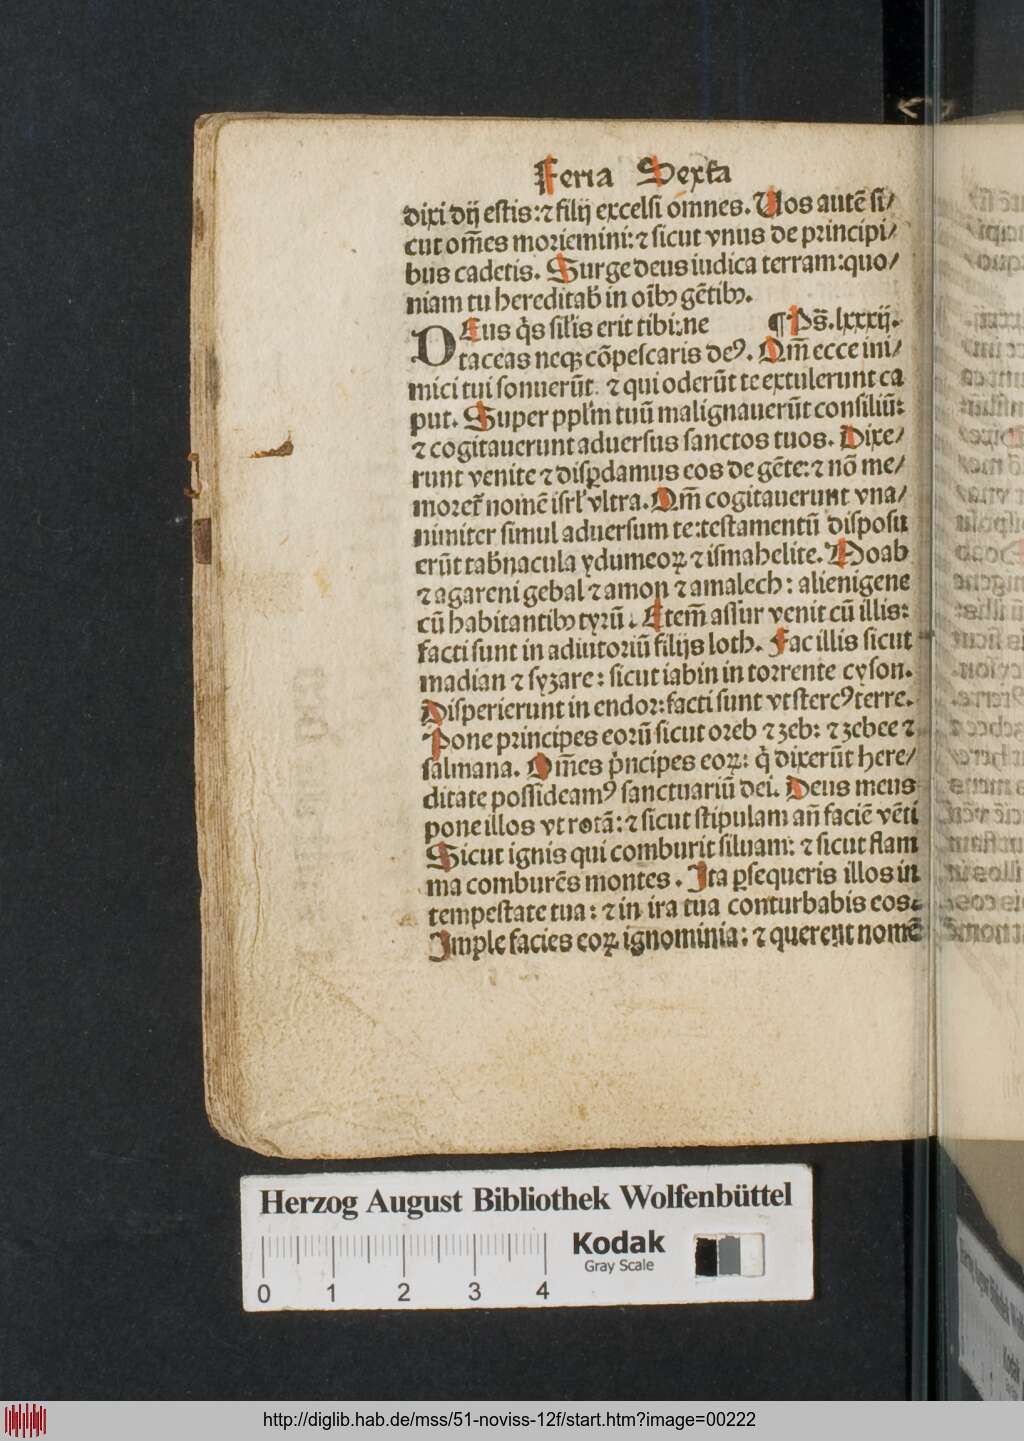 Feria Sexta
dixi dij estis:⁊ filij excelsi omnes. Uos autē si/
cut om̄es moriemini:⁊ sicut vnus de principi/
bus cadetis. Surge deus iudica terram:quo/
niam tu hereditab̄ in oībꝰ gētibꝰ.
DEus q̇s sil̓is erit tibi:ne ¶ Ps̄.lxxxij.
taceas neqꝫ cōpescaris deꝰ. Qm̄ ecce ini/
mici tui sonuerūt ⁊ qui oderūt te extulerunt ca
put. Super ppl̓m tuū malignauerūt consiliū:
⁊ cogitauerunt aduersus sanctos tuos. Dixe/
runt venite ⁊ disꝑdamus eos de gēte:⁊ nō me/
moret̄ nomē isrl̓ vltra. Qm̄ cogitauerunt vna/
nimiter simul aduersum te:testamentū disposu
erūt tab̄nacula ydumeoꝝ ⁊ ismahelite. Moab
⁊ agareni gebal ⁊ amon ⁊ amalech: alienigene
cū habitantibꝰ tyrū. Etem̄ assur venit cū illis:
facti sunt in adiutoriū filijs loth. Fac illis sicut
madian ⁊ syzare: sicut iabin in torrente cyson.
Disperierunt in endor:facti sunt vt stercꝰ terre.
Pone principes eorū sicut oreb ⁊ zeb: ⁊ zebee ⁊
salmana. Om̄es p̓ncipes eoꝝ: q̇ dixerūt here/
ditate possideamꝰ sanctuariū dei. Deus meus
pone illos vt rotā: ⁊ sicut stipulam an̄ faciē vēti
Sicut ignis qui comburit siluam: ⁊ sicut flam
ma comburēs montes. Ita ꝑsequeris illos in
tempestate tua: ⁊ in ira tua conturbabis eos.
Imple facies eoꝝ ignominia: ⁊ querent nomē
Herzog August Bibliothek Wolfenbüttel
Kodak
Gray Scale
0 1 2 3 4
http://diglib.hab.de/mss/51-noviss-12f/start.htm?image=00222